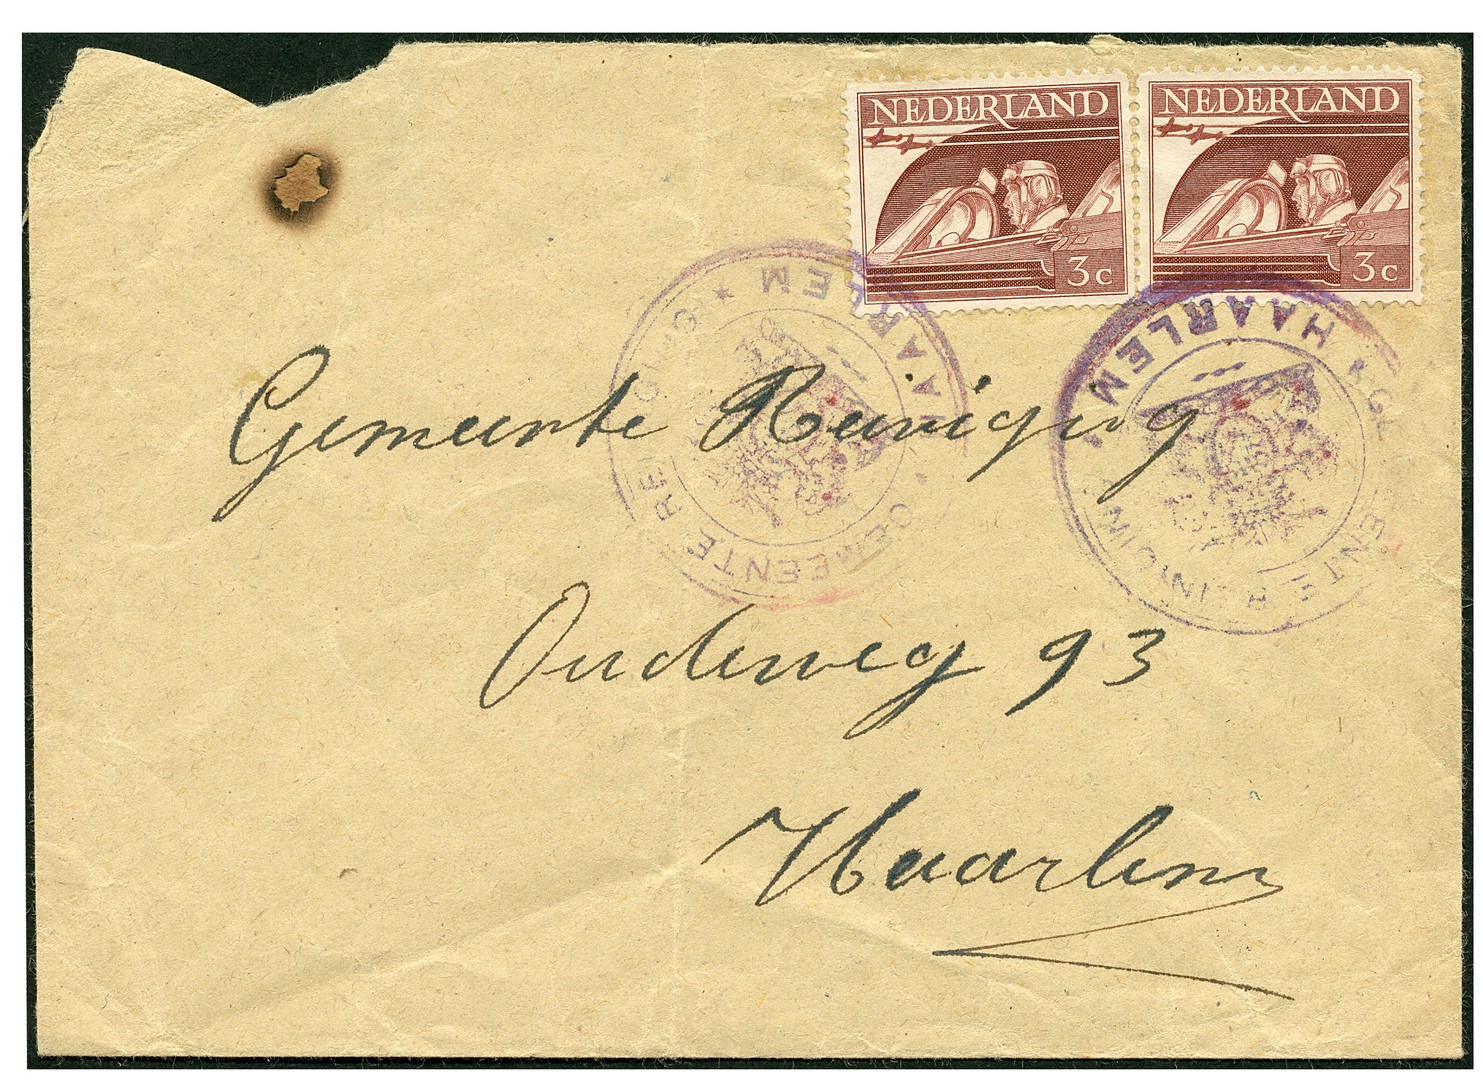 NEDERLAND NEDERLAND
3c 3c
HAARLEM ★ GEMEENTE REINIGING ★
HAARLEM ★ GEMEENTE REINIGING ★
Gemeente Reiniging
Oudeweg 93
Haarlem